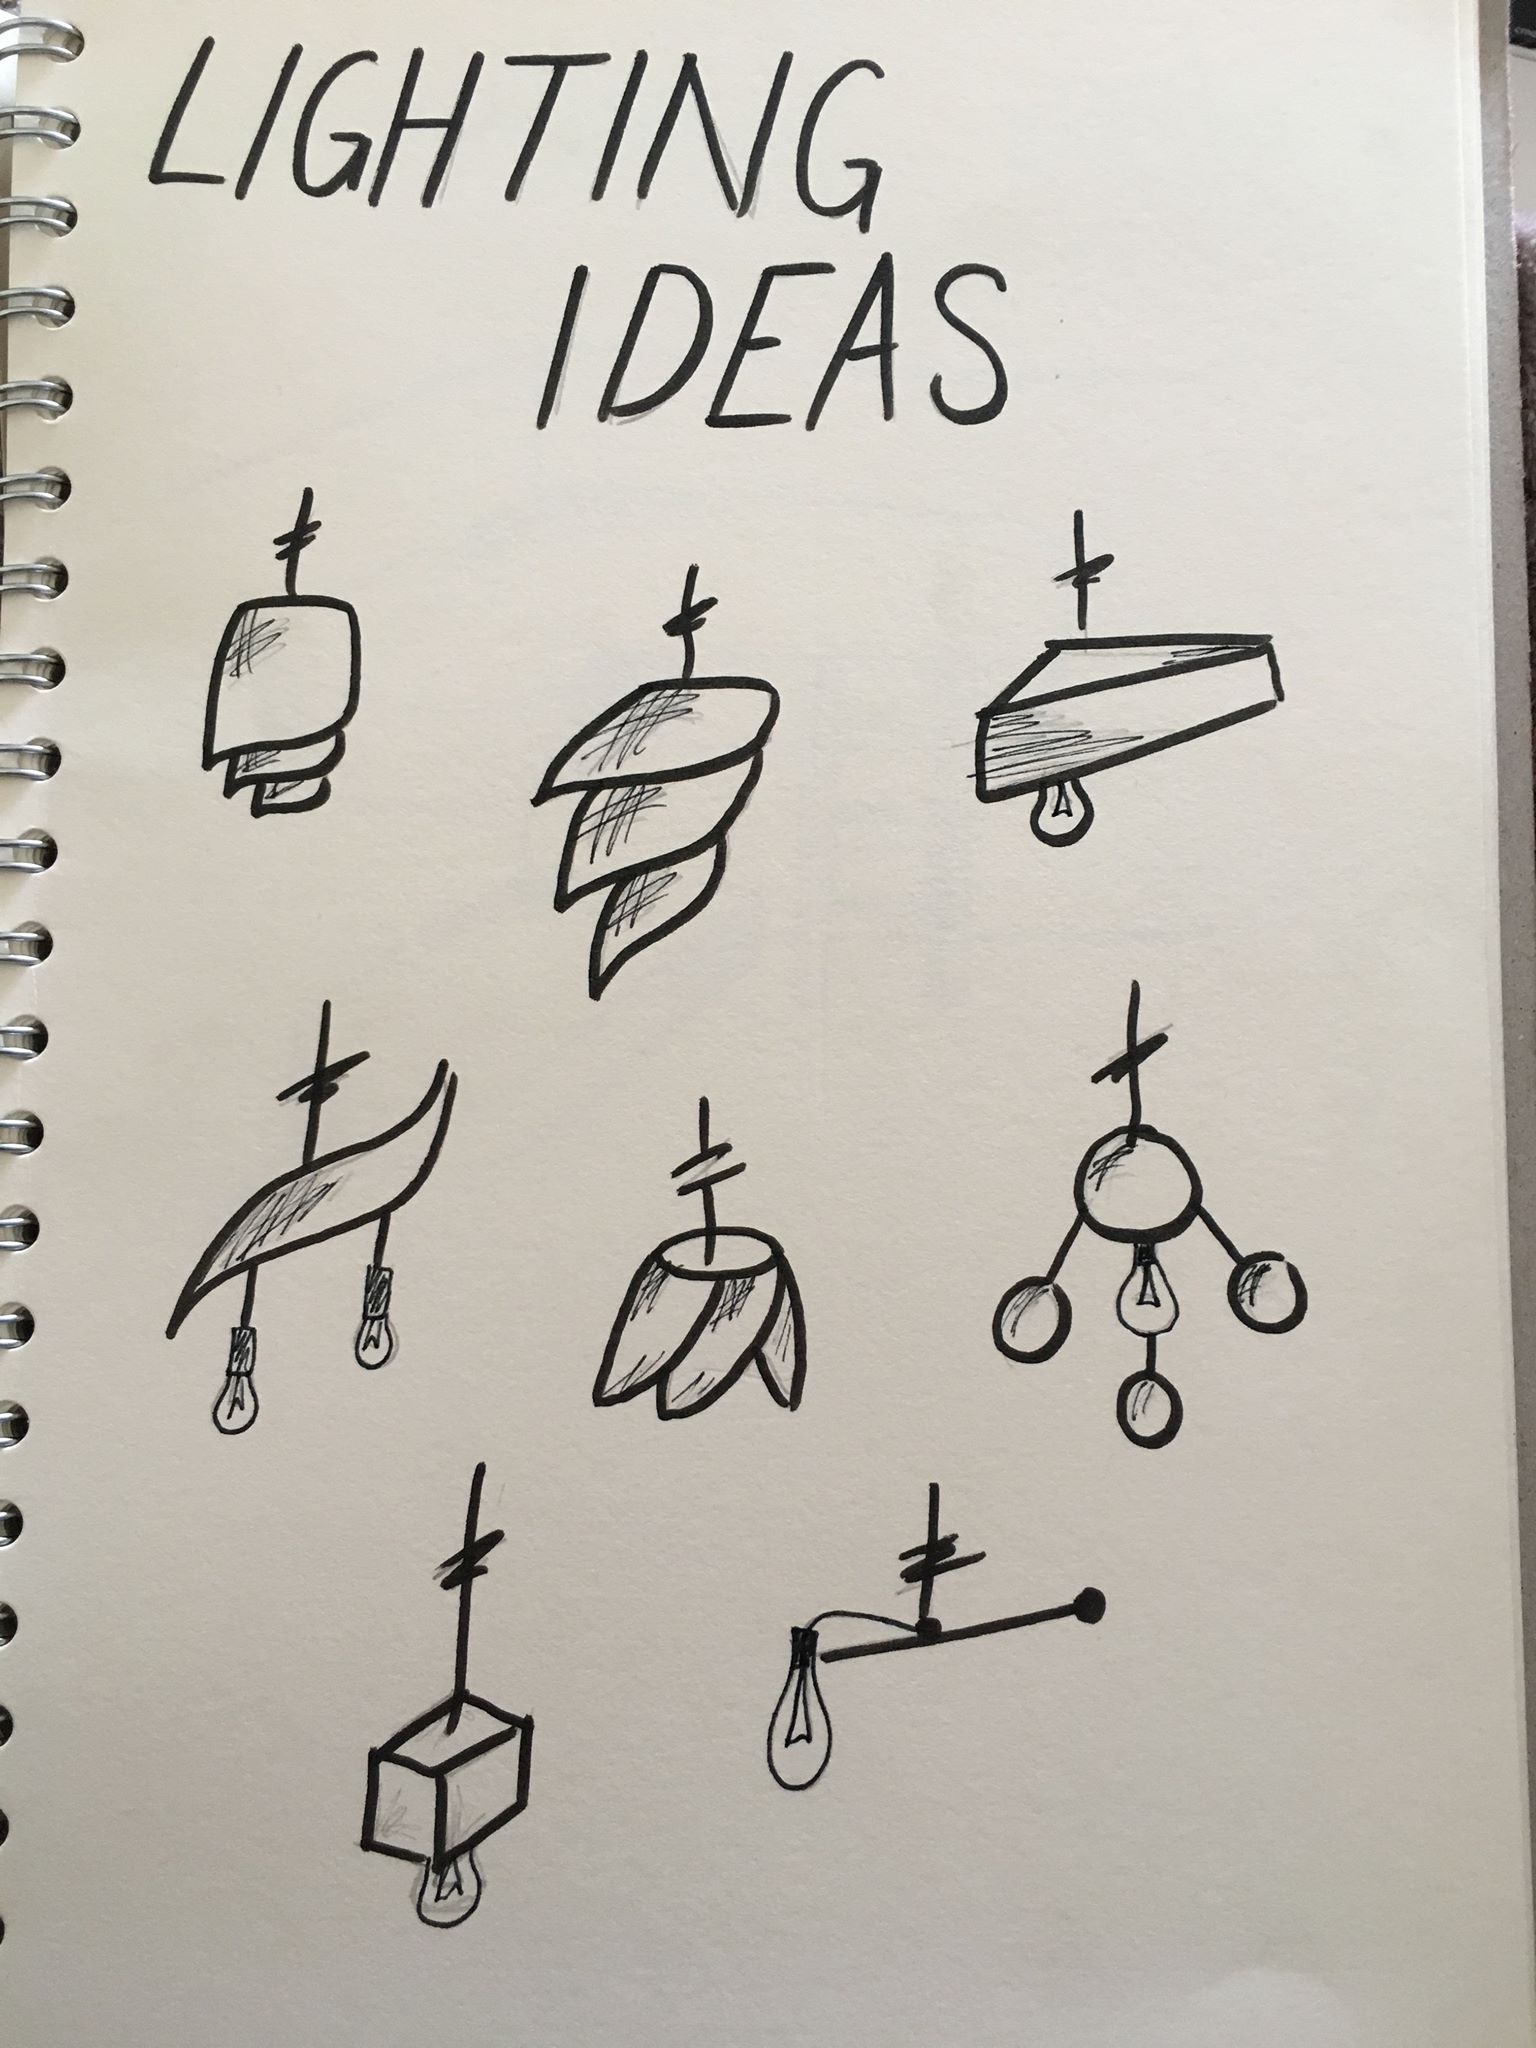 LIGHTING
IDEAS